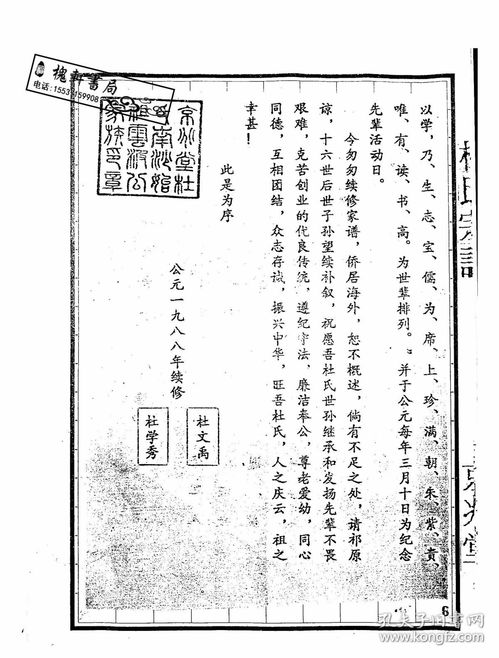 以学,乃、生、志、宝、儒、为、席、上、珍、满、朝、朱、紫、贵、
唯、有、读、书、高。为世辈排列。并于公元每年三月十日为纪念
先辈活动日。
今匆匆续修家谱,侨居海外,恕不概述,倘有不足之处,请祁原
谅,十六世后世子孙望续补叙,祝愿吾杜氏世孙继承和发扬先辈不畏
艰难,克苦创业的优良传统,遵纪守法、廉洁奉公,尊老爱幼,同心
同德,互相团结,众志存诚,振兴中华,旺吾杜氏,人之庆云,祖之
幸甚!
此是为序
公元一九八八年续修
杜文禹
杜学秀
京兆堂杜
家族之章
槐轩書局
电话:15537159908
6
孔夫子旧书网
www.kongfz.com